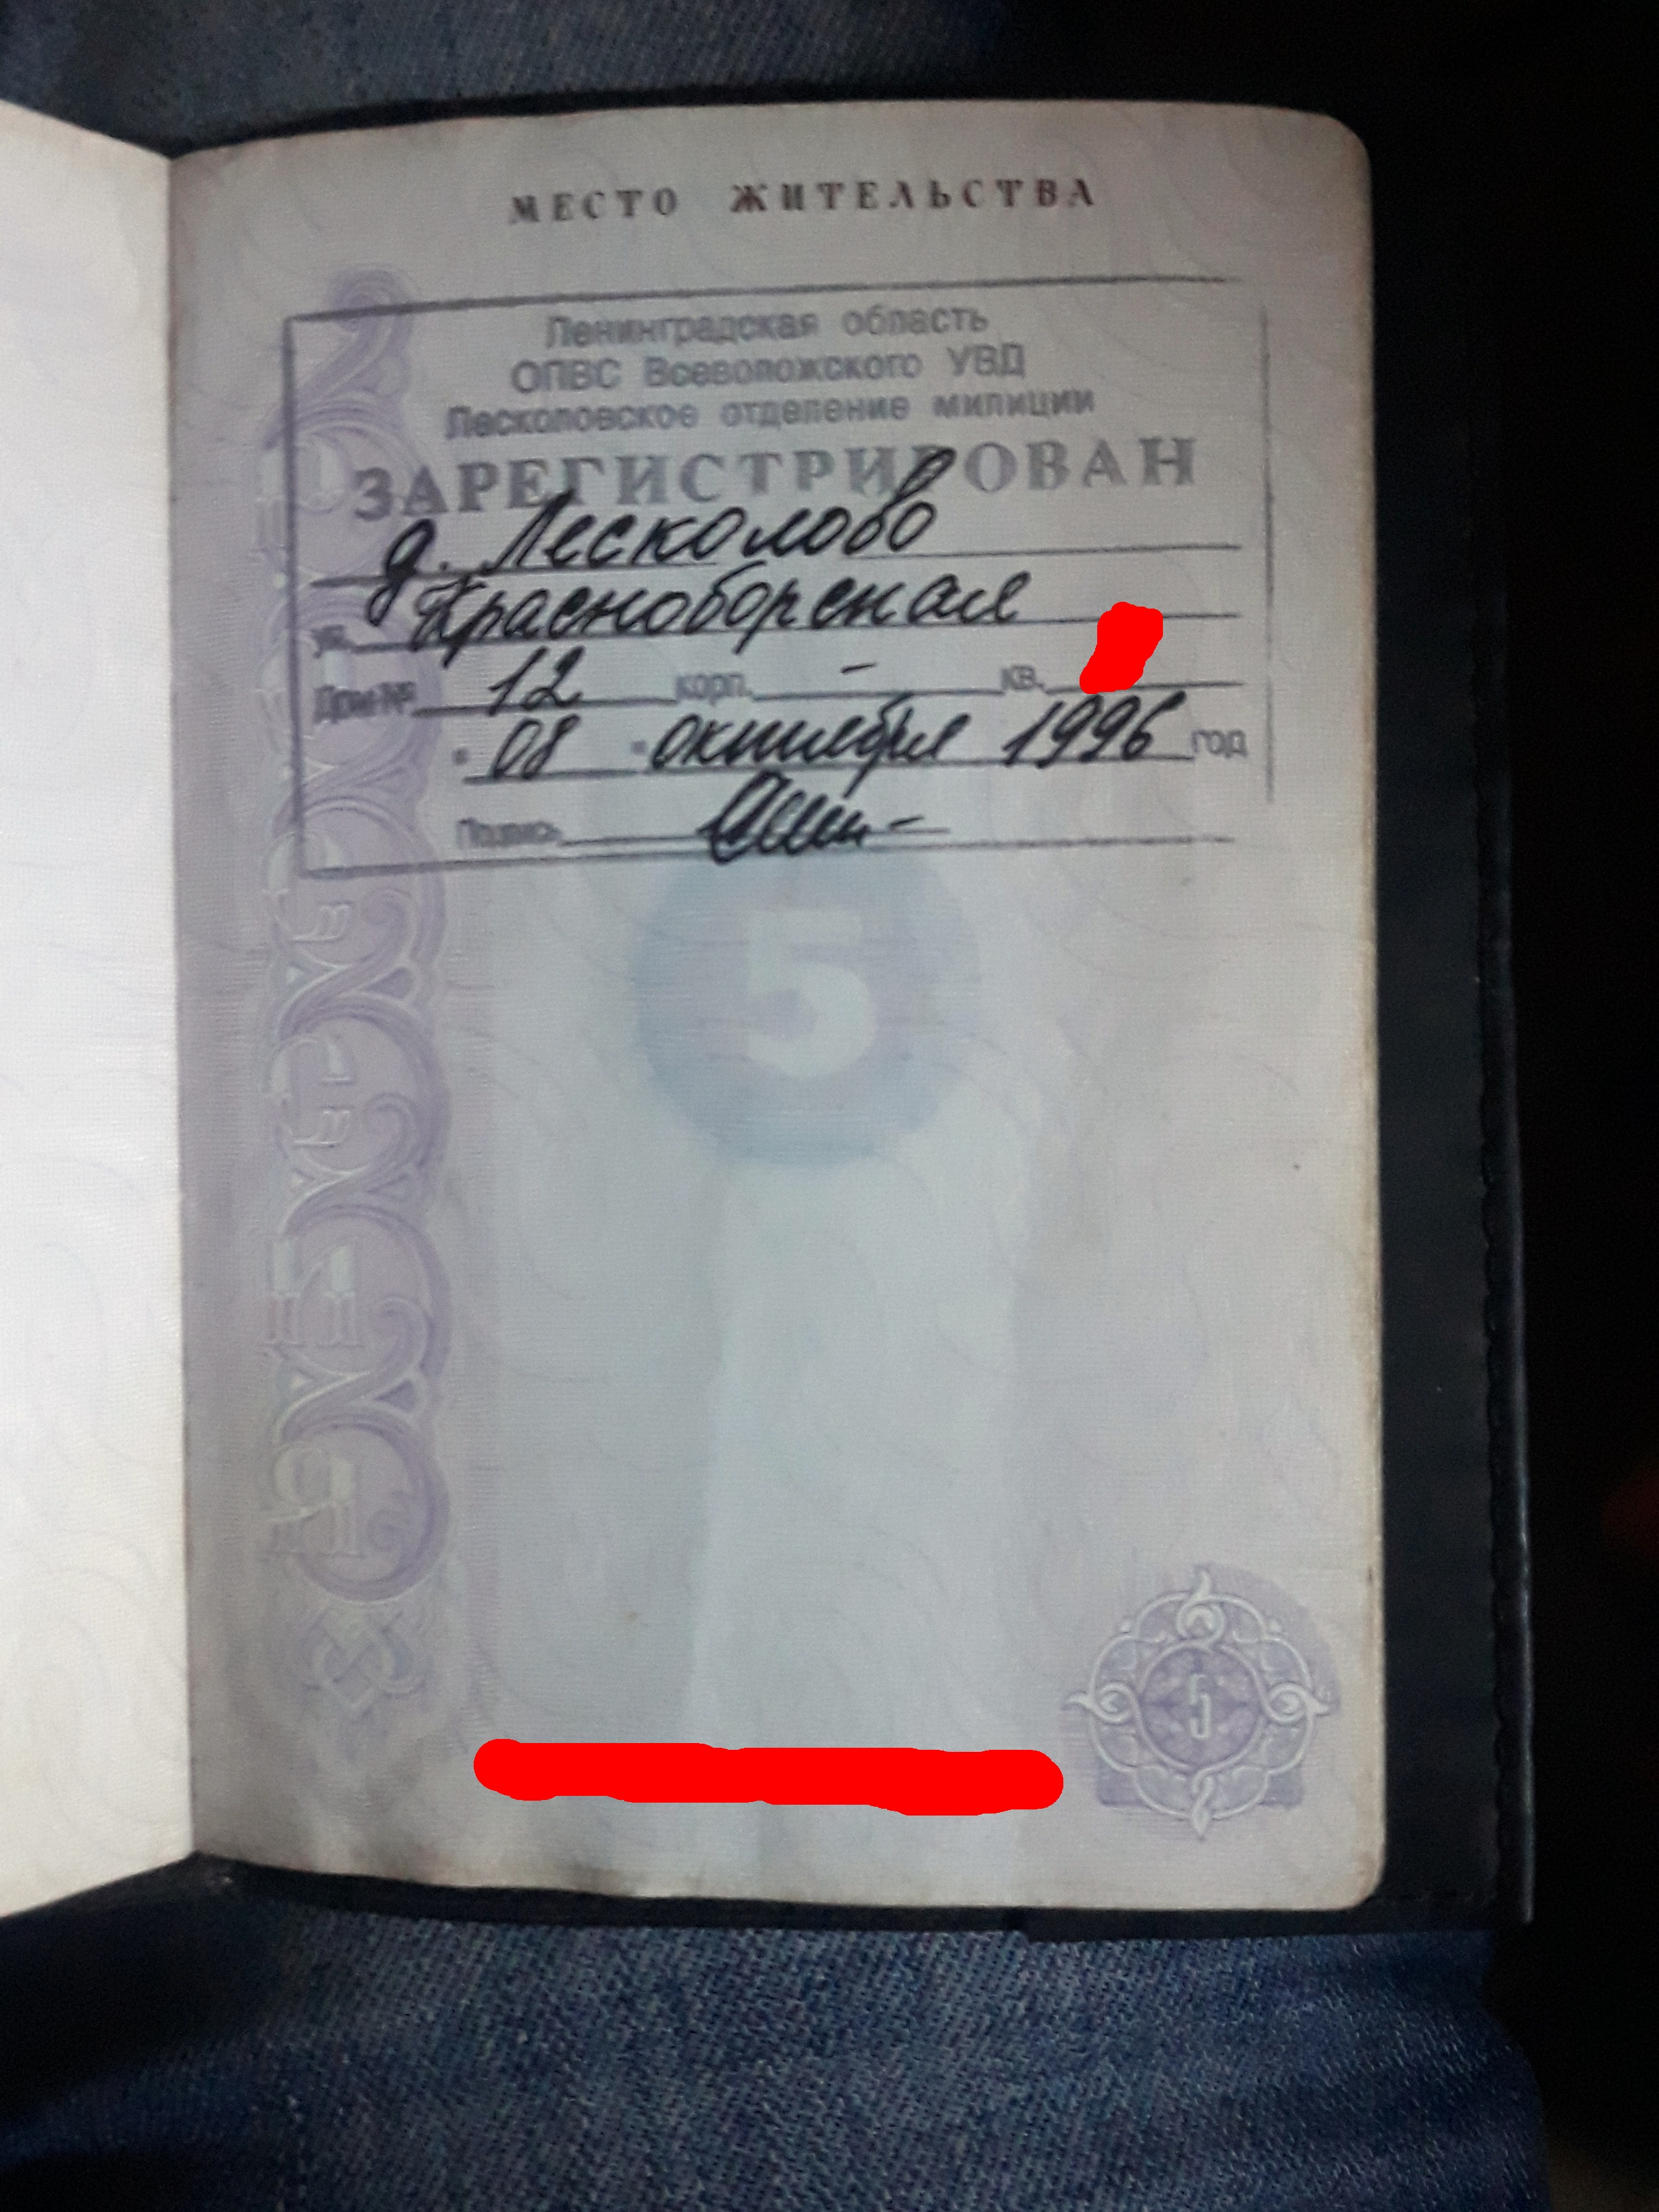 МЕСТО ЖИТЕЛЬСТВА
Ленинградская область
ОПВС Всеволожского УВД
Лесколовское отделение милиции
ЗАРЕГИСТРИРОВАН
д. Лесколово
ул. Красноборская
Дом № 12 корп. – кв.
"08" октября 1996 год
Подпись
5
5